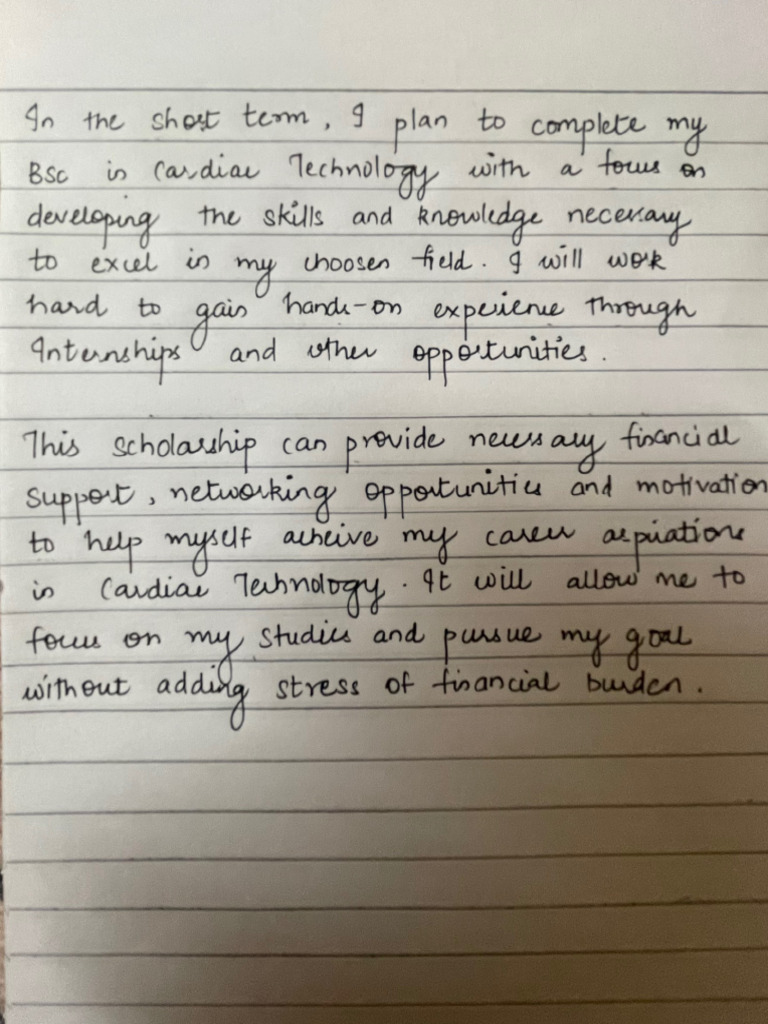 In the short term, I plan to complete my
BSc in Cardiac Technology with a focus on
developing the skills and knowledge necessary
to excel in my choosen field. I will work
hard to gain hands-on experience through
Internships and other opportunities.
This scholarship can provide necessary financial
support, networking opportunities and motivation
to help myself acheive my career aspirations
in Cardiac Technology. It will allow me to
focus on my studies and pursue my goal
without adding stress of financial burden.